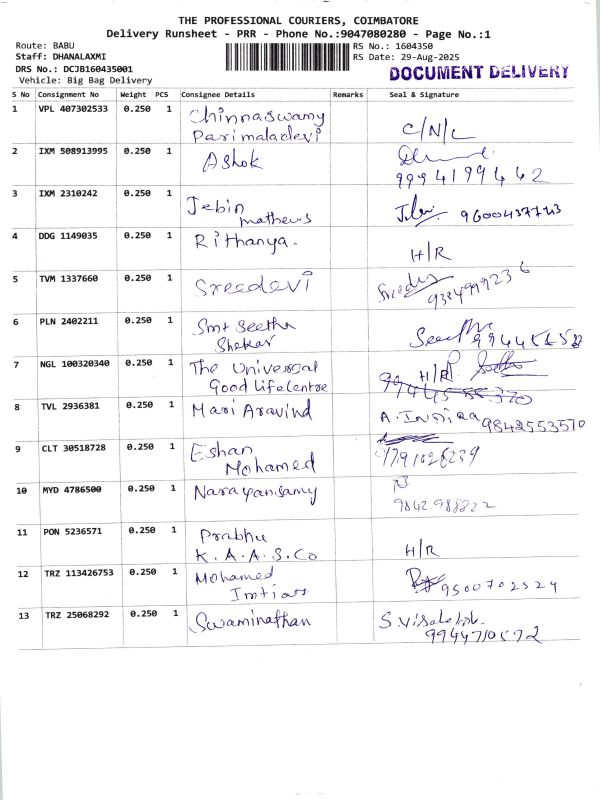 THE PROFESSIONAL COURIERS, COIMBATORE
Delivery Runsheet - PRR - Phone No.:9047080280 - Page No.:1
Route: BABU
Staff: DHANALAXMI
DRS No.: DCJB160435001
Vehicle: Big Bag Delivery
RS No.: 1604350
RS Date: 29-Aug-2025
DOCUMENT DELIVERY
S No Consignment No Weight PCS Consignee Details Remarks Seal & Signature
1 VPL 407302533 0.250 1 Chinnaswamy
Parimaladevi C/N/L
2 IXM 508913995 0.250 1 Ashok
9994199442
3 IXM 2310242 0.250 1 Jebin
mathews
4 DDG 1149035 0.250 1 Rithanya. H/R
5 TVM 1337660 0.250 1 Sreedevi
6 PLN 2402211 0.250 1 Smt Seetha
Shekar
7 NGL 100320340 0.250 1 The Universal
Good Life Centre H/R
8 TVL 2936381 0.250 1 Mari Aravind A. Indira 9842553510
9 CLT 30518728 0.250 1 Eshan
Mohamed
10 MYD 4786500 0.250 1 Narayansamy
11 PON 5236571 0.250 1 Prabhu
K.A.A.S.Co H/R
12 TRZ 113426753 0.250 1 Mohamed
13 TRZ 25068292 0.250 1 Swaminathan